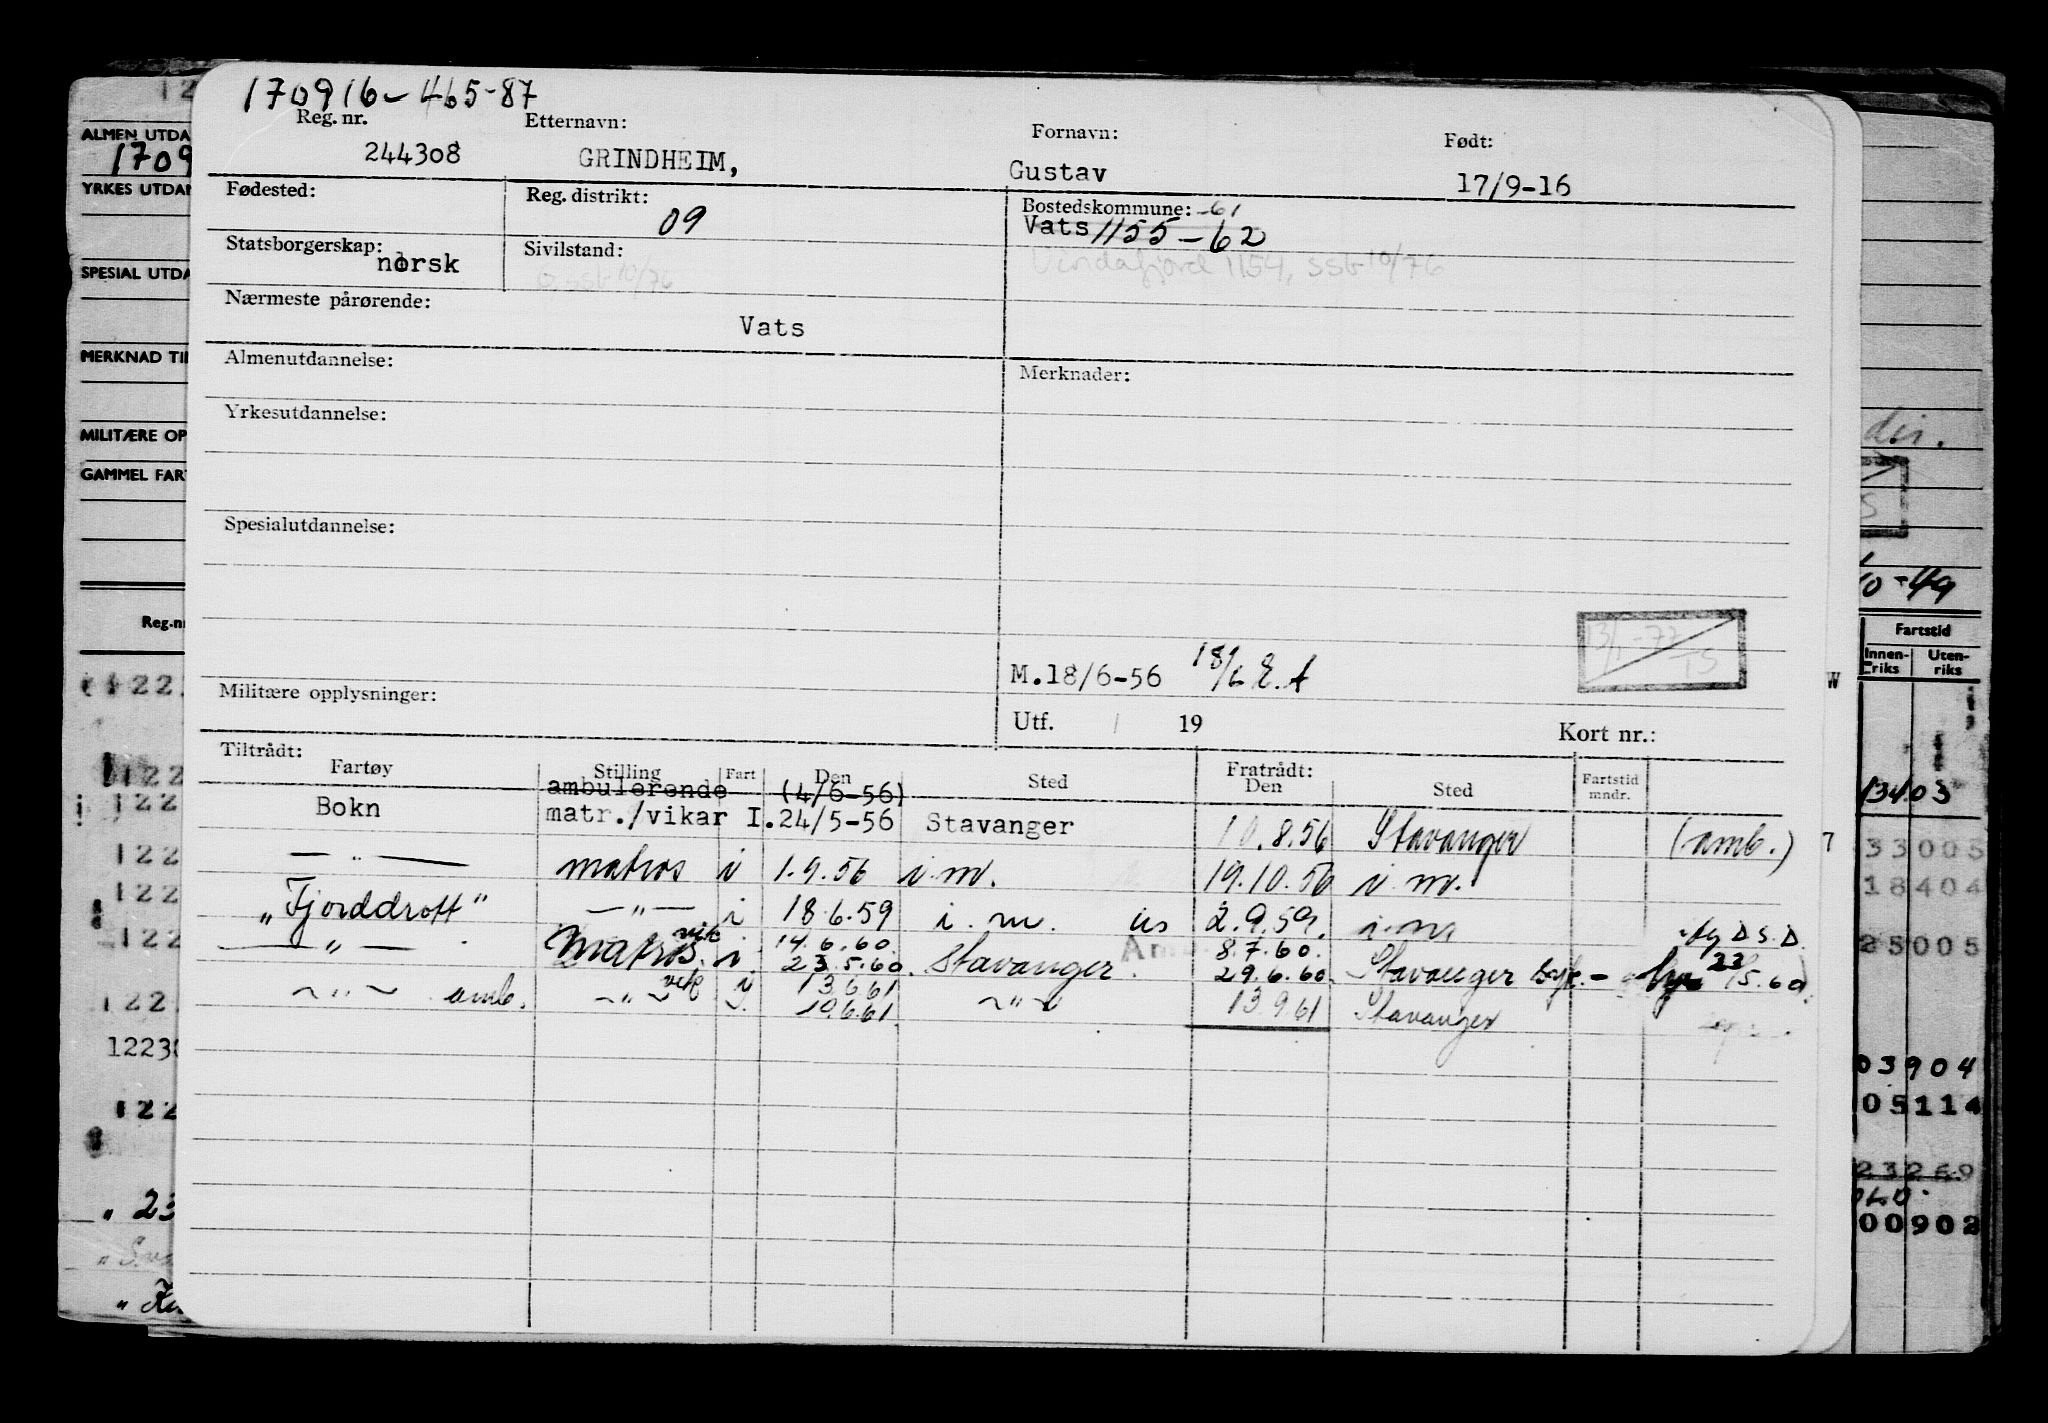 170916-465-87
Reg. nr. Etternavn: Fornavn: Født:
244308 GRINDHEIM, Gustav 17/9-16
Fødested: Reg. distrikt: Bostedskommune: -61
09 Vats 1155-62
Statsborgerskap: Sivilstand: Vindafjord 1154, ssb 10/76
norsk ssb 10/76
Nærmeste pårørende:
Vats
Almenutdannelse: Merknader:
Yrkesutdannelse:
Spesialutdannelse:
13/1-77
TS
M.18/6-56 18/6 E.A
Militære opplysninger:
Utf. / 19 Kort nr.:
Tiltrådt: Fratrådt:
Fartøy Stilling Fart Den Sted Den Sted Fartstid mndr.
ambulerende (4/6-56)
Bokn matr./vikar I. 24/5-56 Stavanger 10.8.56 Stavanger (amb.)
— " — matros i 1.9.56 i.m. 19.10.56 i.m.
"Fjorddrott" — " — i 18.6.59 i.m. us 2.9.59. i.m
— " — Matros vik i 14.6.60. 8.7.60. D.S.D.
23.5.60. Stavanger. 29.6.60. Stavanger 23/5.60
— " — amb. — " — vik i 13.6.61 — " — 13.9.61 Stavanger
10.6.61.
ALMEN UTDA
1709
YRKES UTDAN
SPESIAL UTDA
MERKNAD TI
MILITÆRE OP
GAMMEL FAR
Reg.n
122
122
122
122
122
122
122
12230
122
" 23
dir.
S
10-49
Fartstid
Innen-riks Uten-riks
W
13403
7
33005
18404
25005
03904
05114
23269
00902